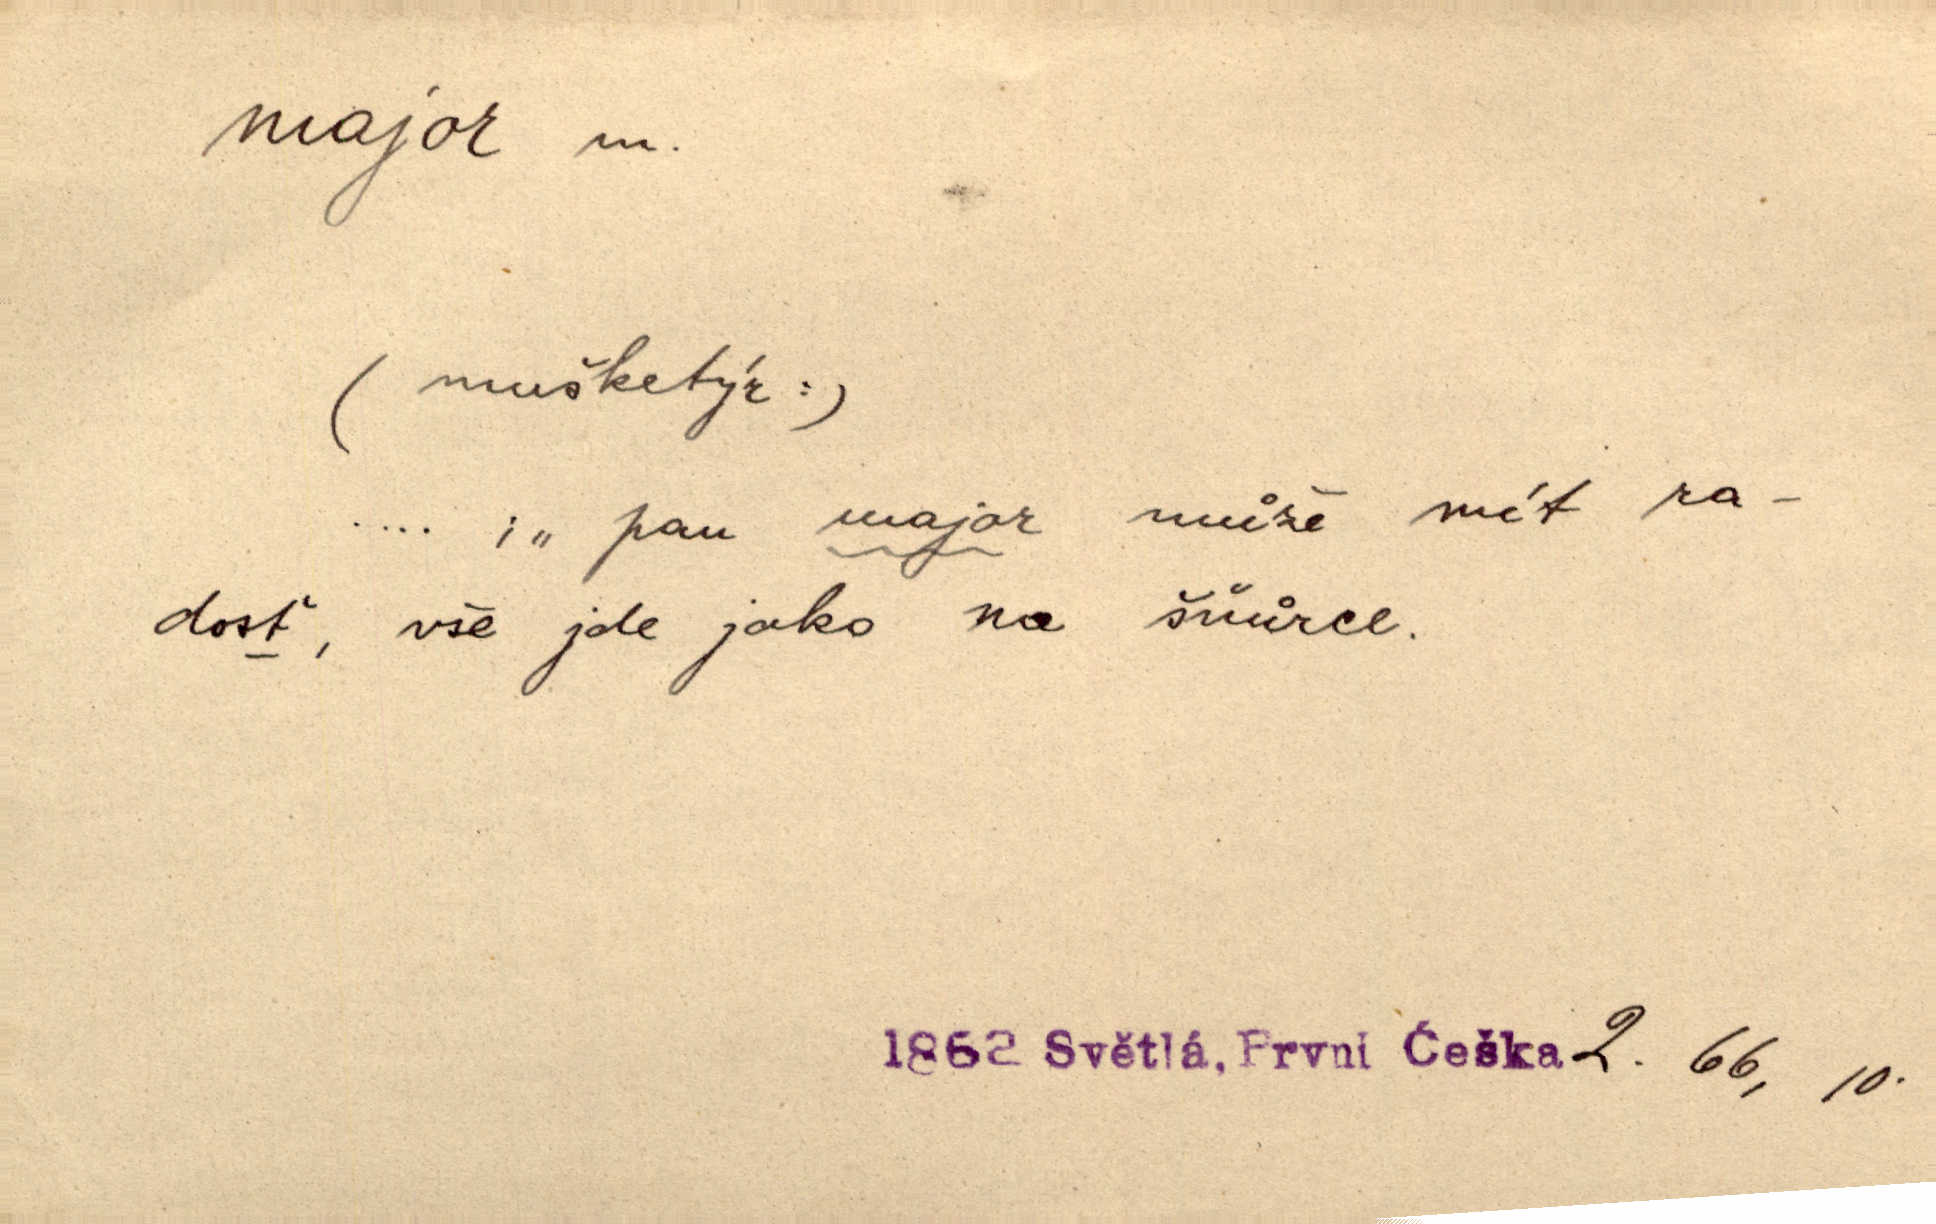 major m.
(mušketýr:)
.... ; „ pan major může mít ra-
dosť, vše jde jako na šňůrce.
1862 Světlá, První Češka 2. 66, 10.